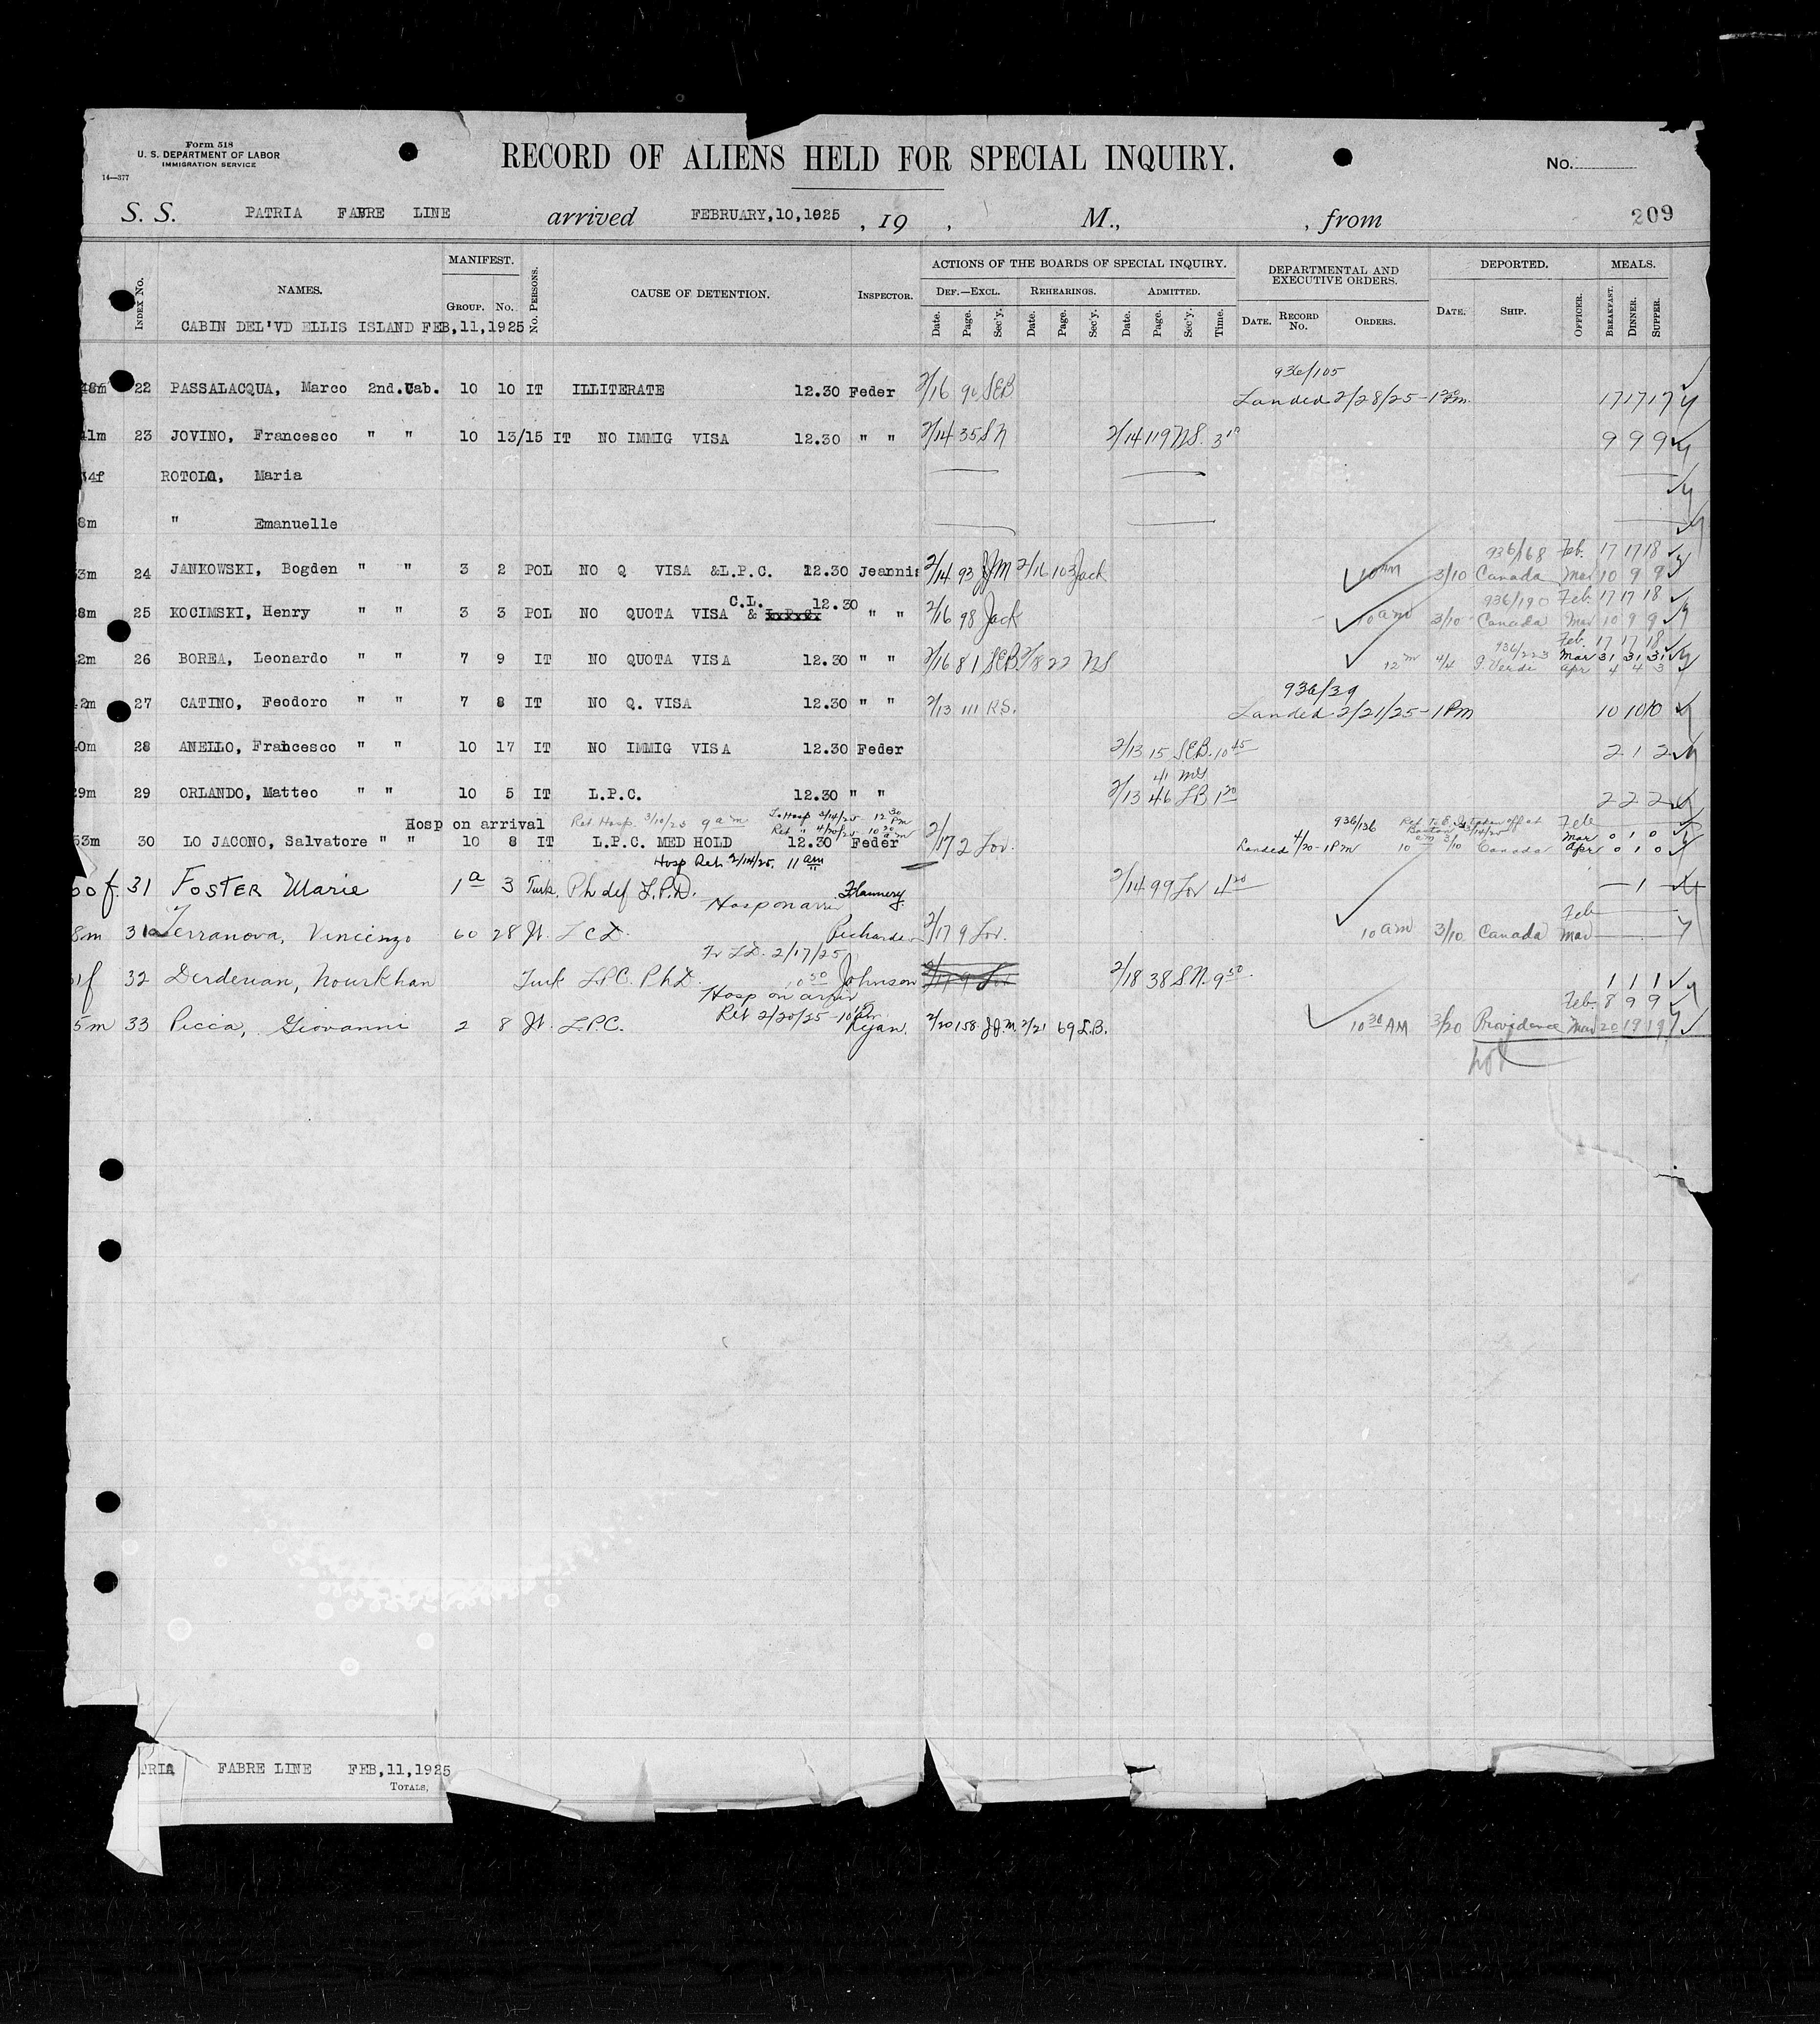 Form 518
U. S. DEPARTMENT OF LABOR
IMMIGRATION SERVICE
14—377
RECORD OF ALIENS HELD FOR SPECIAL INQUIRY.
No.
S. S. PATRIA FABRE LINE arrived FEBRUARY,10,1925 , 19 , M., , from 209
INDEX No. NAMES. MANIFEST. GROUP. No. No. PERSONS. CAUSE OF DETENTION. INSPECTOR. ACTIONS OF THE BOARDS OF SPECIAL INQUIRY. DEF.—EXCL. Date. Page. Sec'y. REHEARINGS. Date. Page. Sec'y. ADMITTED. Date. Page. Sec'y. Time. DEPARTMENTAL AND EXECUTIVE ORDERS. DATE. RECORD No. ORDERS. DEPORTED. DATE. SHIP. OFFICER. MEALS. BREAKFAST. DINNER. SUPPER.
CABIN DEL'VD ELLIS ISLAND FEB,11,1925
936/105
22 PASSALACQUA, Marco 2nd. Cab. 10 10 IT ILLITERATE 12.30 Feder 2/16 90 SEB Landed 2/28/25- 17 17 17
41m 23 JOVINO, Francesco " " 10 13/15 IT NO IMMIG VISA 12.30 " " 2/14 35 SN 2/14 119 NS. 9 9 9
4f ROTOLO, Maria
8m " Emanuelle
936/168 Feb. 17 17 18
3m 24 JANKOWSKI, Bogden " " 3 2 POL NO Q VISA &L.P.C. 12.30 Jeannis 2/14 93 JJM 2/16 103 Jack 10 AM 3/10 Canada Mar 10 9 9
C.L. 12.30 936/190 Feb. 17 17 18
28m 25 KOCIMSKI, Henry " " 3 3 POL NO QUOTA VISA & L.P.C. " " 2/16 98 Jack 10 am 3/10 Canada Mar 10 9 9
936/223 Feb. 17 17 18
2m 26 BOREA, Leonardo " " 7 9 IT NO QUOTA VISA 12.30 " " 2/16 81 SEB 2/8 22 NS 12 m 4/4 G. Verdi Mar 31 31 31
Apr 4 4 3
936/39
2m 27 CATINO, Feodoro " " 7 8 IT NO Q. VISA 12.30 " " 2/13 111 R.S. Landed 2/21/25-1PM 10 10 10
40m 28 ANELLO, Francesco " " 10 17 IT NO IMMIG VISA 12.30 Feder 2/13 15 SEB. 10 45 2 1 2
41 MS
29m 29 ORLANDO, Matteo " " 10 5 IT L.P.C. 12.30 " " 2/13 46 LB 1 20 2 2 2
Hosp on arrival Ret. Hosp. 3/10/25 9 am To Hosp 3/14/25 12 30 PM 936/136 Feb
Ret " 4/20/25 - 10 20 am
53m 30 LO JACONO, Salvatore " " 10 8 IT L.P.C. MED HOLD 12.30 Feder 2/17 2 Lov. Landed 4/20-1PM 3/10 Canada Mar 0 1 0
Apr 0 1 0
Hosp Ret. 2/14/25. 11 am
f. 31 FOSTER Marie 1 a 3 Turk. Ph def L.P.D. Flannery. 2/14 99 Lov 4 20 1
Hosp on arriv Feb
8m 31a Terranova, Vincenzo 60 28 It. L C D. Richards 2/17 9 Lov. 10 am 3/10 Canada Mar
2/17/25
f 32 Derderian, Nourkhan Turk L.P.C. Ph.D. 10 50 Johnson 2/17 9 Lov 2/18 38 S.N. 9 50 1 1 1
Hosp on arriv Feb. 8 9 9
Ret 2/20/25 -
5m 33 Picca, Giovanni 2 8 It. L.P.C. Ryan. 2/20 158 J.J.M. 2/21 69 L.B. 10 30 AM 3/20 Providence Mar 20 19 19
PATRIA FABRE LINE FEB,11,1925
TOTALS,